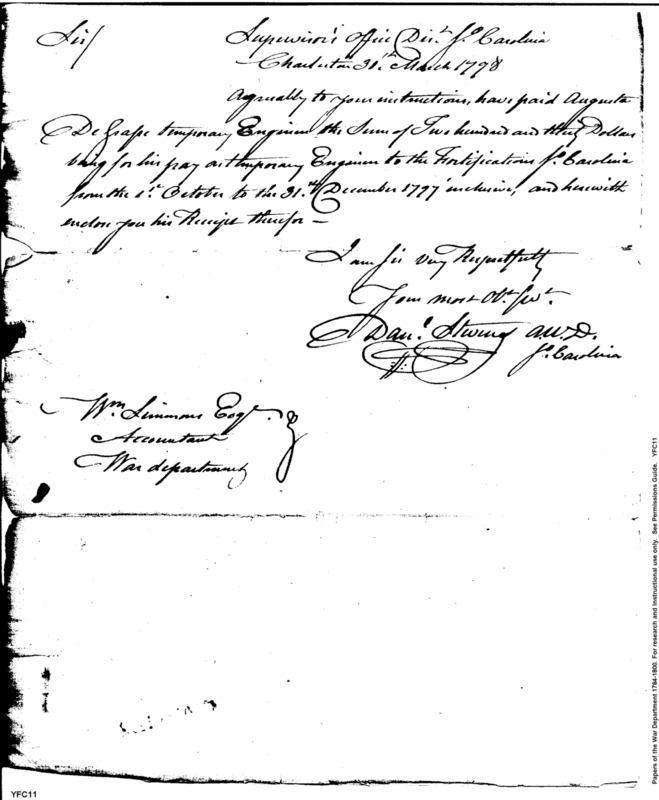 Sir/
Supervisor's Office Dist. So. Carolina
Charleston 31st. March 1798
Agreeably to your instructions, have paid Augusta
De Grasse temporary Engineer the Sum of Two hundred and thirty Dollars
being for his pay as temporary Engineer to the Fortifications So. Carolina
from the 1st. October to the 31st. December 1797 inclusive, and herewith
enclose you his Receipt therefor —
I am Sir very Respectfully
Your most Obt. Svt.
Danl. Stevens A.W.D.
So. Carolina
Wm. Simmons Esqr.
Accountant
War department
YFC11
Papers of the War Department 1784-1800. For research and instructional use only. See Permissions Guide. YFC11